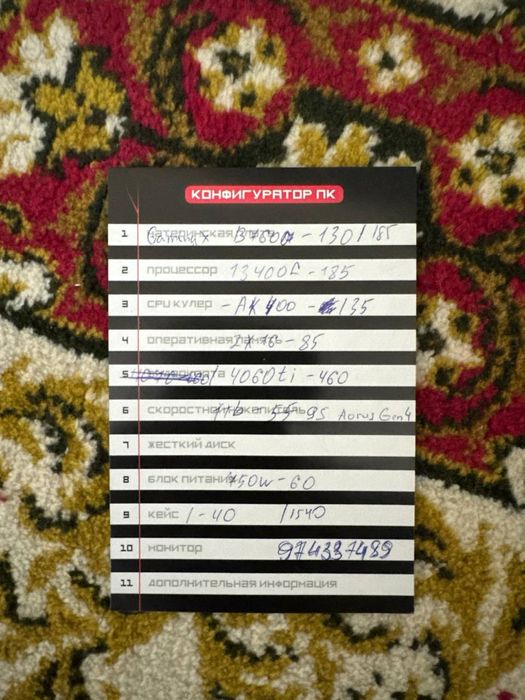 КОНФИГУРАТОР ПК
1 материнская плата Gaming X B760 - 130/185
2 процессор 13400f - 185
3 CPU кулер - AK400 - /35
4 оперативная память 2x16 - 85
5 видеокарта / 4060ti - 460
6 скоростной накопитель 1tb 55 95 Aorus Gen4
7 жесткий диск
8 блок питания 750w - 60
9 кейс / - 40 /1540
10 монитор 974337489
11 дополнительная информация